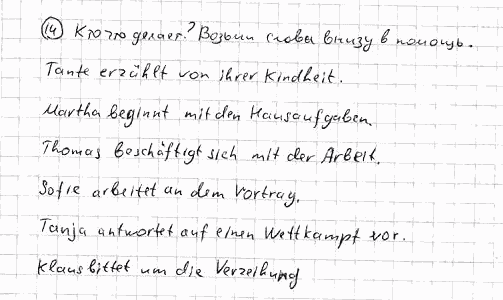 14 Кто что делает? Возьми слова внизу в помощь.
Tante erzählt von ihrer Kindheit.
Martha beginnt mit den Hausaufgaben.
Thomas beschäftigt sich mit der Arbeit.
Sofie arbeitet an dem Vortrag.
Tanja antwortet auf einen Wettkampf vor.
Klaus bittet um die Verzeihung